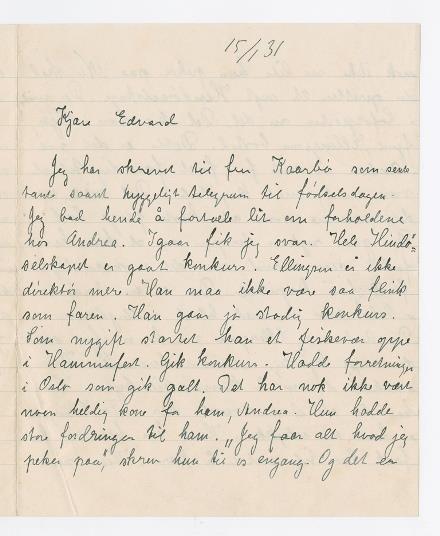 15/1 31
Kjære Edvard
Jeg har skrevet til fru Kaarbø som sente
hende saamt hyggeligt telegram til fødselsdagen.
Jeg bad hende å fortælle lit om forholdene
hos Andrea. Igaar fik jeg svar. Hele Hindø-
selskapet er gaat konkurs. Ellingsen er ikke
direktør mere. Han maa ikke være saa flink
som faren. Han gaar jo stadig konkurs.
Som nygift startet han et fiskevær oppe
i Hammerfest. Gik konkurs. Hadde forretninger
i Oslo som gik galt. Det har nok ikke vært
noen heldig kone for ham, Andrea. Hun hadde
store fordringer til ham. „Jeg faar alt hvad jeg
peker paa", skrev hun til os engang. Og det er